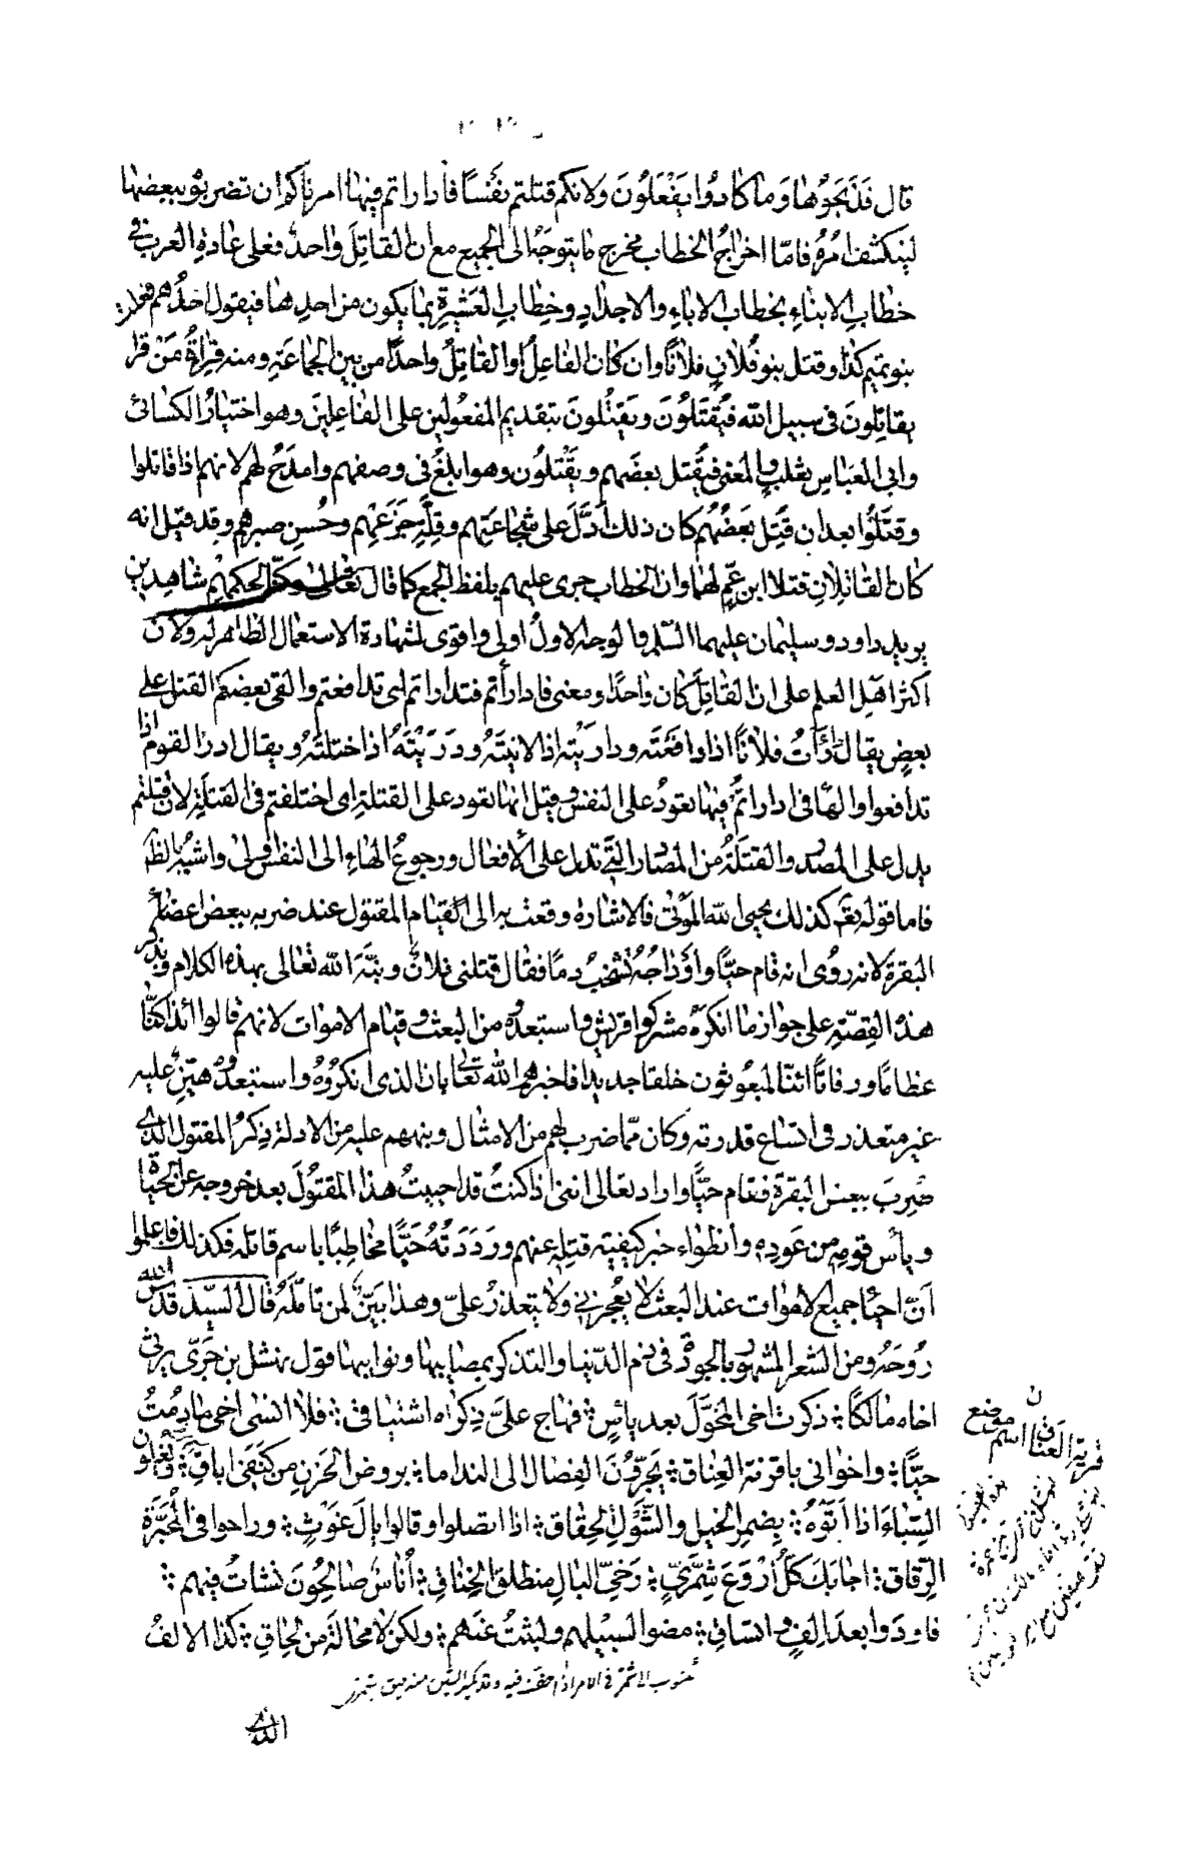 قال فَذَبَحُوْهَا وَمَا كَادُوا يَفْعَلُونَ ولانكم قتلتم نَفْسًا فادارأتم فيها امرناكم ان تضربوه ببعضها
لينكشف امْرُهُ فامّا اخراجُ الخطاب مخرج ما يتوجّهُ الى الجميع مع ان القاتِلَ واحدٌ فعلى عادةِ العرب في
خطابِ الابناءِ بخطاب الاباءِ والاجدادِ وخِطابِ العَشِيْرَةِ بما يكون من احدِها فيقول احدُهم فعلت
بنو تميم كذا وقتل بنو فُلانٍ فلانًا وان كان الفاعِلُ او القاتِلُ واحدًا من بين الجماعَةِ ومنه قِراءَةُ مَنْ قرأ
يقاتِلونَ فى سبيل الله فيُقْتَلُونَ ويَقْتُلُونَ بتقديم المفعُولين على الفاعِلِينَ وهو اختيارُ الكسائى
وابى العبّاسِ ثعلبٍ والمعنى فيُقْتل بعضهم ويَقْتُلون وهو ابلغُ فى وصفهم وامدَحُ لهم لانهم اذا قاتلوا
وقَتَلُوا بعد ان قُتِلَ بعضُهُم كان ذلك أَدَلَّ على شجاعَتِهم وقِلَّةِ جَزَعِهِم وحُسنِ صبرهم وقد قيل انه
كان القاتلانِ قتلا ابن عمٍّ لهما وان الخطاب جرى عليهم بلفظ الجمع كما قال تعالى وكنّا لحكمهم شاهدين
يريد داود وسليمان عليهما السّلم والوجه الاولُ اولى واقوى لشهادة الاستعمال الظاهر له ولان
اكثر اهلِ العلم على ان القاتِلَ كان واحدًا ومعنى فادارأتم فتدارأتم اى تدافعتم والقى بعضكم القتل على
بعضٍ يقال دَرَأْتُ فلانًا اذا دافعتَه وداريْته اذا لاينتَهُ ودَرَيْتَهُ اذا ختلتَهُ ويقال ادرأ القوم اذا
تدافعوا والهاء فى ادارأتم فيها تعودُ على النفس وقيل انها تعود على القتلة اى اختلفتم فى القتلةِ لان قتلتم
يدل على المصدر والقتلَةُ من المصادر التى تدل على الأفعال ورجوعُ الهاءِ الى النفس اولى واشبهُ بالظاهر
فاما قوله تعالى كذلك يحيى الله الموْتى فالاشارة وقعت به الى القيام المقتول عند ضربه ببعض اعضاءِ
البقرة لانه رُوِى انه قام حيًّا واَوْدَاجُهُ تشخبُ دمًا فقال قتلنى فلانٌ ونبّهَ الله تعالى بهذا الكلام وبذكر
هذه القِصّةِ على جواز ما انكره مشركوا قريش واستبعدوه من البعث وقيام الاموات لانهم قالوا ائذا كنّا
عظامًا ورفاتًا ائنّا لمبعُوثون خلقا جديدا فاخبرهم الله تعالى بان الذى انكَرُوْهُ واستبعدُوه هيّنٌ عليه
غير متعذر فى اتساعِ قدرته وكان ممّا ضرب لهم من الامثال ونبههم عليه من الادلة ذِكرُ المقتول الذى
ضُرِبَ ببعض البقرة فقام حيًّا واراد تعالى اننى اذا كنتُ قد احييتُ هذا المقتُولَ بعد خروجه عن الحياة
ويأس قومِهِ من عَودِهِ وانطواء خبر كيفيّة قتلِهِ عنهم وردَدْتُهُ حَيًّا مخاطِبًا باسم قاتله فكذلك فاعلموا
اَنَّ احياءَ جميع الاموات عند البعث لا يُعْجِزُنِى ولا يتعذرُ علىَّ وهذا بَيّنٌ لمن تأمّلَهُ قال السيّد قدس الله
رُوحَهُ ومن الشعر المشهور بالجودة فى ذم الدّنيا والتذكير بمصايبها ونوايبها قول نهشل بن حَرّى يرثى
اخاه مالكًا ؛ ذكرت اخى المُخَوَّلَ بعد يأسٍ ؛ فهاج علىَّ ذِكراه اشتياقى ؛ فلا انسى اخى ما دُمتُ
حيًّا ؛ واخوانى باقرنة العناق ؛ يَجرّونَ الفِصال الى الندامى ؛ بروض الحَزنِ من كَنَفَى اُفاقِ ؛ ويُغلون
السِّباءَ اذا اَتَوْهُ ؛ بضمر الخيل والشَّوْلِ الحِقاقِ ؛ اذا اتصلوا وقالوا يالَ غَوْثٍ ؛ وراحوا فى المُحبَّرَةِ
الرّقاق ؛ اجابك كلّ اَرْوَعَ شِمَّرِىٍّ ؛ رَخِىِّ البالِ منطلق الخِناقِ ؛ أُناسٌ صالحُونَ نشأتُ فيهم ؛
فاودَوا بعد اِلفٍ واتساقِ ؛ مضوا لسبيلهم ولبثتُ عنهم ؛ ولكن لا محالةَ من لحاقِ ؛ كذا الالفُ
الذى
ن
قرنة العناق اسم موضع